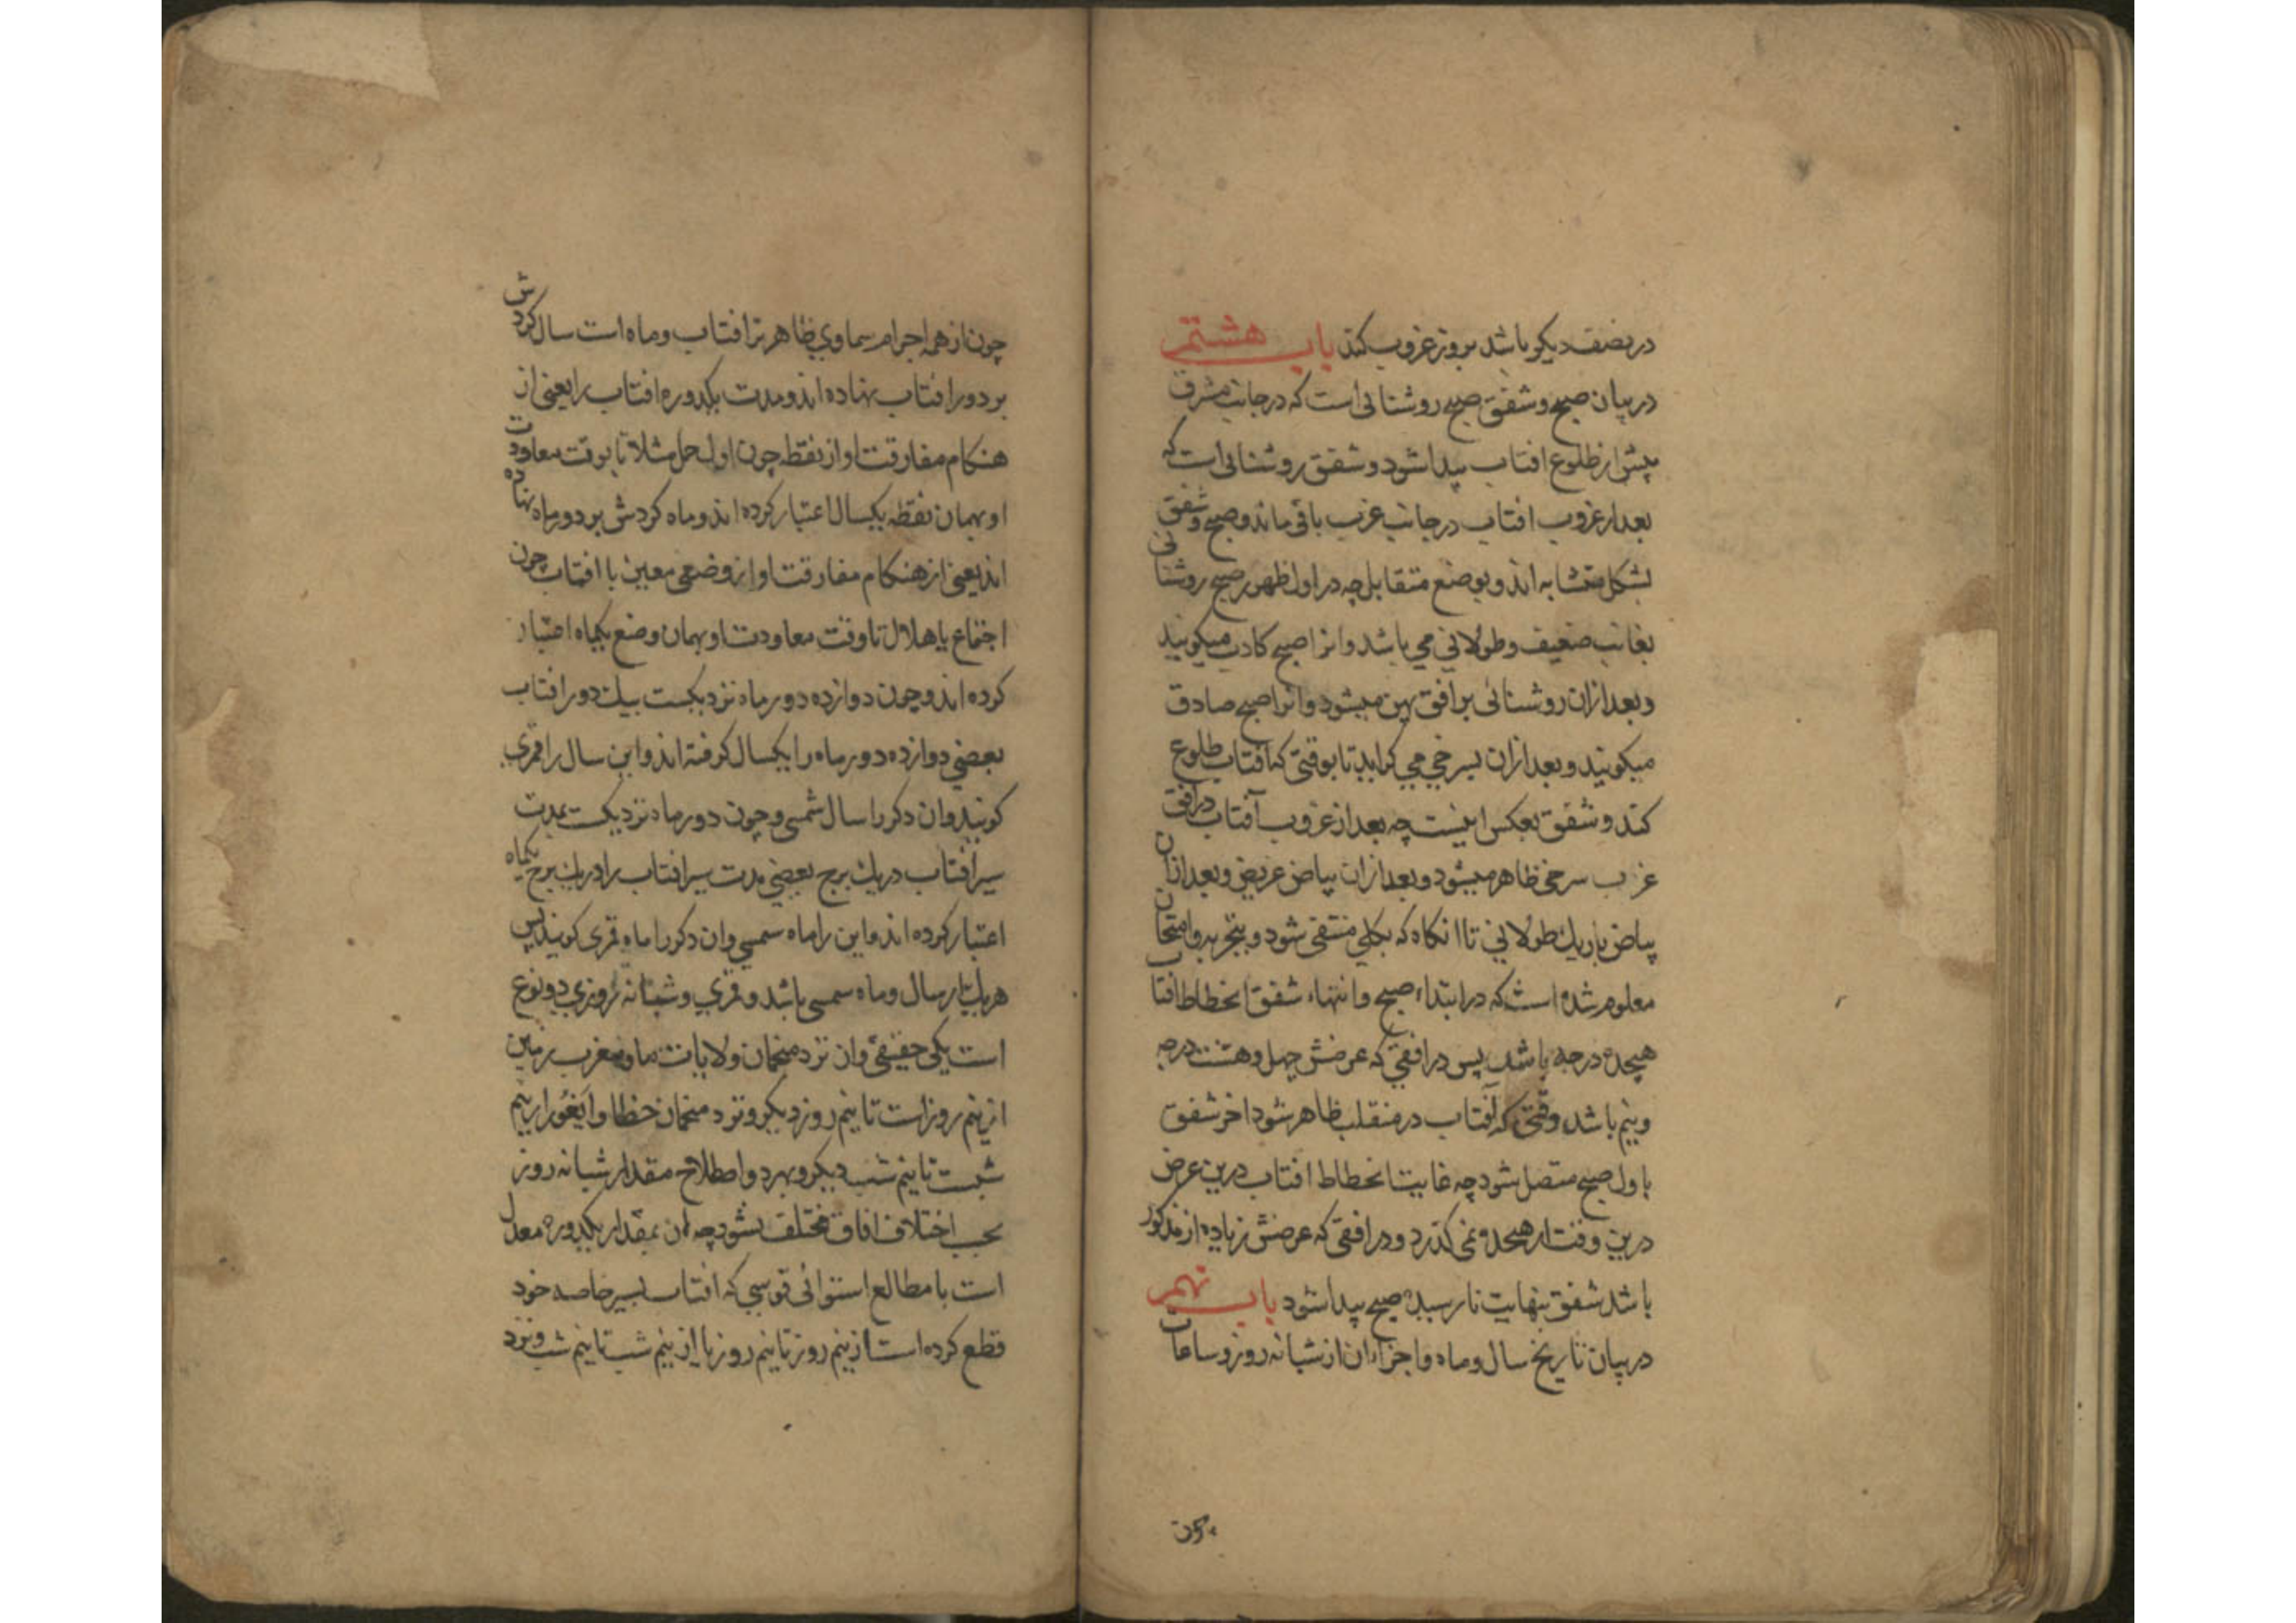 در نصف دیکر باشد بروز غروب کند باب هشتم
در بیان صبح و شفق صبح روشنائی است که در جانب مشرق
پیش از طلوع افتاب پیدا شود و شفق روشنائی است که
بعد از غروب افتاب در جانب غرب باقی ماند و صبح و شفق
بشکل متشابه اند و بوضع متقابل چه در اول ظهور صبح روشنائی
بغایت ضعیف و طولانی می باشد و انرا صبح کاذب میکویند
و بعد ازان روشنائی بر افق پهن میشود و انرا صبح صادق
میکویند و بعد ازان بسرخی می کراید تا بوقتی که افتاب طلوع
کند و شفق بعکس اینست چه بعد از غروب آفتاب در افق
غرب سرخی ظاهر میشود و بعد ازان بیاض عریض و بعد ازان
بیاض باریک طولانی تا انکاه که بکلی منتفی شود و بتجربه و امتحان
معلوم شده است که در ابتداء صبح و انتهاء شفق انحطاط افتاب
هیجده درجه باشد پس در افقی که عرضش چهل و هشت درجه
و نیم باشد وقتی که آفتاب در منقلب ظاهر شود اخر شفق
باول صبح متصل شود چه غایت انحطاط افتاب درین عرض
درین وقت از هیجده نمی کذرد و در افقی که عرضش زیاده از مذکور
باشد شفق بنهایت نارسیده صبح پیدا شود باب نهم
در بیان تاریخ سال و ماه و اجزاء ان از شبانه روز و ساعات
چون
چون از همه اجرام سماوی ظاهرتر افتاب و ماه است سال کردش
بر دور افتاب نهاده اند و مدت یکدوره افتاب را یعنی از
هنکام مفارقت او از نقطه چون اول حمل مثلا تا بوقت معاودت
او بهمان نقطه یکسال اعتبار کرده اند و ماه کردش بر دور ماه نهاده
اند یعنی از هنکام مفارقت او از وضعی معین با افتاب چون
اجتماع یا هلال تا وقت معاودت او بهمان وضع یکماه اعتبار
کرده اند و چون دوازده دور ماه نزدیکست بیک دور افتاب
بعضی دوازده دور ماه را یکسال کرفته اند و این سال را قمری
کویند و ان دکر را سال شمسی و چون دور ماه نزدیکست بمدت
سیر افتاب در یک برج بعضی مدت سیر افتاب را در یک برج یکماه
اعتبار کرده اند و این را ماه شمسی و ان دکر را ماه قمری کویند پس
هر یک از سال و ماه شمسی باشد و قمری و شبانه روزی دو نوع
است یکی حقیقی و ان نزد منجمان ولایات ما و مغرب زمین
از نیم روز است تا نیم روز دیکر و نزد منجمان خطا و ایغور از نیم
شبست تا نیم شب دیکر و بهر دو اصطلاح مقدار شبانه روز
بحسب اختلاف افاق مختلف نشود چه ان بمقدار یکدوره معدل
است با مطالع استوائی قوسی که افتاب بسیر خاصه خود
قطع کرده است از نیم روز تا نیم روز یا از نیم شب تا نیم شب و نزد